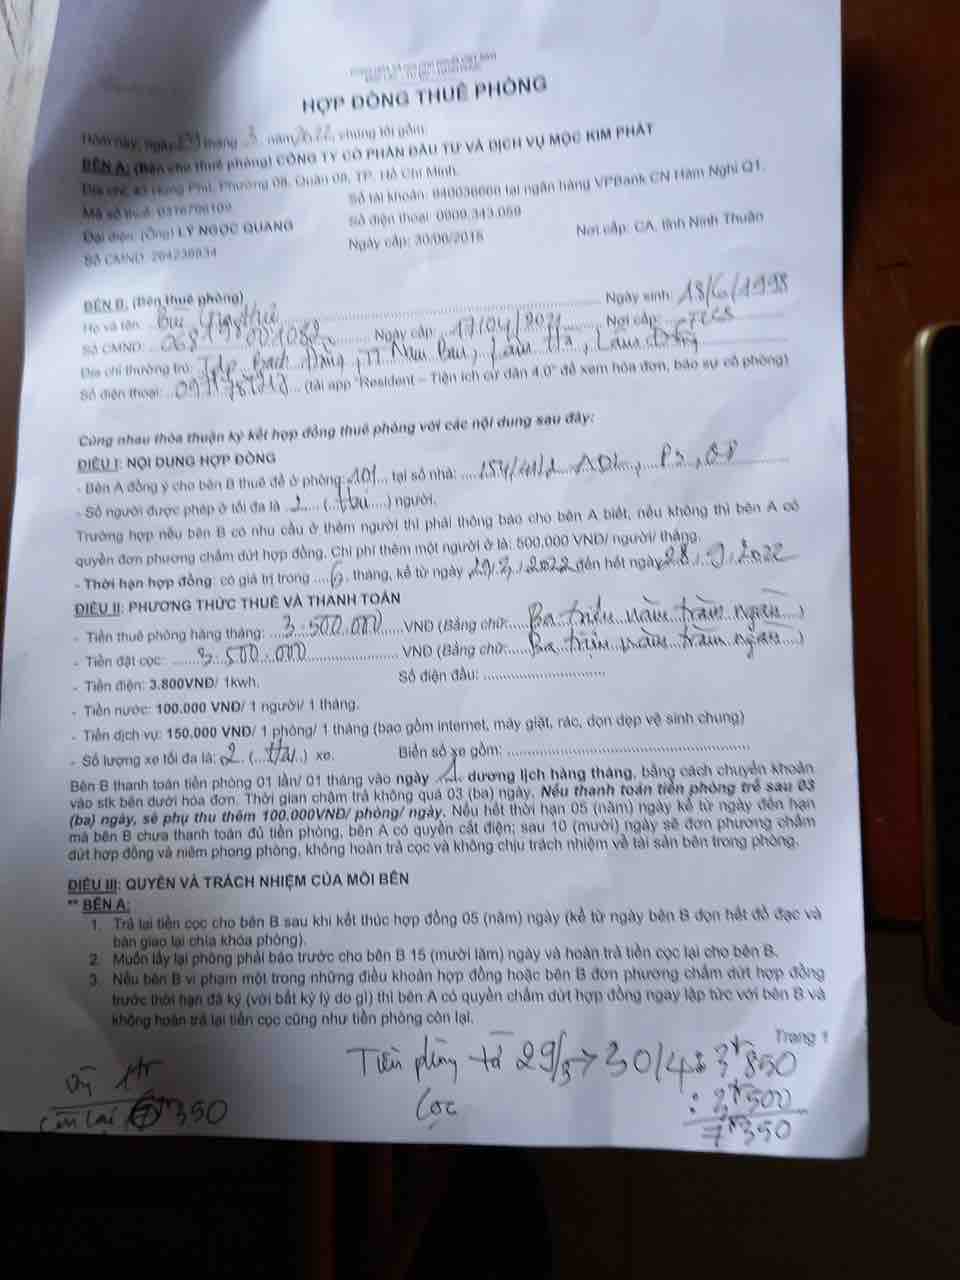 CỘNG HÒA XÃ HỘI CHỦ NGHĨA VIỆT NAM
HỢP ĐỒNG THUÊ PHÒNG
Hôm nay, ngày 29 tháng 3 năm 2022, chúng tôi gồm:
BÊN A: (Bên cho thuê phòng) CÔNG TY CỔ PHẦN ĐẦU TƯ VÀ DỊCH VỤ MỘC KIM PHÁT
Địa chỉ: Hưng Phú, Phường 08, Quận 08, TP. Hồ Chí Minh.
Mã số thuế: Số tài khoản: tại ngân hàng VPBank CN Hàm Nghi Q1.
Đại diện: (Ông) LÝ NGỌC QUANG Số điện thoại: 0909.343.059
Số CMND: 264236834 Ngày cấp: 30/06/2016 Nơi cấp: CA. tỉnh Ninh Thuận
BÊN B: (Bên thuê phòng)
Họ và tên: Bùi Thuê Ngày sinh: 18/6/1998
Số CMND: Ngày cấp: 17/04/2021 Nơi cấp:
Địa chỉ thường trú: Tdp Bạch Đằng, TT Nam Ban, Lâm Hà, Lâm Đồng
Số điện thoại: (tải app "Resident – Tiện ích cư dân 4.0" để xem hóa đơn, báo sự cố phòng)
Cùng nhau thỏa thuận ký kết hợp đồng thuê phòng với các nội dung sau đây:
ĐIỀU I: NỘI DUNG HỢP ĐỒNG
- Bên A đồng ý cho bên B thuê để ở phòng: 101 tại số nhà: P5, Q8
- Số người được phép ở tối đa là 2 (Hai) người.
Trường hợp nếu bên B có nhu cầu ở thêm người thì phải thông báo cho bên A biết, nếu không thì bên A có
quyền đơn phương chấm dứt hợp đồng. Chi phí thêm một người ở là: 500.000 VNĐ/ người/ tháng.
- Thời hạn hợp đồng: có giá trị trong 6 tháng, kể từ ngày 29/3/2022 đến hết ngày 28/9/2022
ĐIỀU II: PHƯƠNG THỨC THUÊ VÀ THANH TOÁN
- Tiền thuê phòng hàng tháng: 3.500.000 VNĐ (Bằng chữ: Ba triệu năm trăm ngàn)
- Tiền đặt cọc: 3.500.000 VNĐ (Bằng chữ: Ba triệu năm trăm ngàn)
- Tiền điện: 3.800VNĐ/ 1kwh. Số điện đầu:
- Tiền nước: 100.000 VNĐ/ 1 người/ 1 tháng.
- Tiền dịch vụ: 150.000 VNĐ/ 1 phòng/ 1 tháng (bao gồm internet, máy giặt, rác, dọn dẹp vệ sinh chung)
- Số lượng xe tối đa là: 2 (Hai) xe. Biển số xe gồm:
Bên B thanh toán tiền phòng 01 lần/ 01 tháng vào ngày 1 dương lịch hàng tháng, bằng cách chuyển khoản
vào stk bên dưới hóa đơn. Thời gian chậm trả không quá 03 (ba) ngày. Nếu thanh toán tiền phòng trễ sau 03
(ba) ngày, sẽ phụ thu thêm 100.000VNĐ/ phòng/ ngày. Nếu hết thời hạn 05 (năm) ngày kể từ ngày đến hạn
mà bên B chưa thanh toán đủ tiền phòng, bên A có quyền cắt điện; sau 10 (mười) ngày sẽ đơn phương chấm
dứt hợp đồng và niêm phong phòng, không hoàn trả cọc và không chịu trách nhiệm về tài sản bên trong phòng.
ĐIỀU III: QUYỀN VÀ TRÁCH NHIỆM CỦA MỖI BÊN
** BÊN A:
1. Trả lại tiền cọc cho bên B sau khi kết thúc hợp đồng 05 (năm) ngày (kể từ ngày bên B dọn hết đồ đạc và
bàn giao lại chìa khóa phòng).
2. Muốn lấy lại phòng phải báo trước cho bên B 15 (mười lăm) ngày và hoàn trả tiền cọc lại cho bên B.
3. Nếu bên B vi phạm một trong những điều khoản hợp đồng hoặc bên B đơn phương chấm dứt hợp đồng
trước thời hạn đã ký (với bất kỳ lý do gì) thì bên A có quyền chấm dứt hợp đồng ngay lập tức với bên B và
không hoàn trả lại tiền cọc cũng như tiền phòng còn lại.
Trang 1
Tiền phòng từ 29/3 → 30/4: 3tr 850
Cọc : 3tr 500
7tr 350
1tr
Còn lại 6tr 350